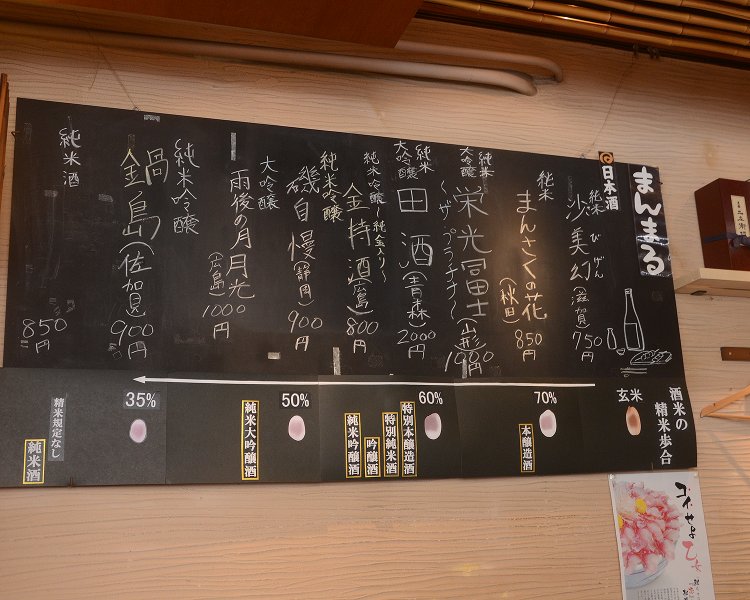 まんまる
日本酒
純米 びげん
沙美幻
(滋賀)
750円
純米
まんさくの花
(秋田)
850円
純米
大吟醸
栄光冨士
〜ザ・プラチナ〜
(山形)
1000円
純米
大吟醸
田酒
(青森)
2000円
純米吟醸〜純金入り〜
金持酒
(広島)
800円
純米吟醸
磯自慢
(静岡)
900円
大吟醸
雨後の月 月光
(広島)
1000円
純米吟醸
鍋島
(佐賀)
900円
純米酒
850円
酒米の
精米歩合
玄米
70%
本醸造酒
60%
特別本醸造酒
特別純米酒
吟醸酒
純米吟醸酒
50%
純米大吟醸酒
35%
精米規定なし
純米酒